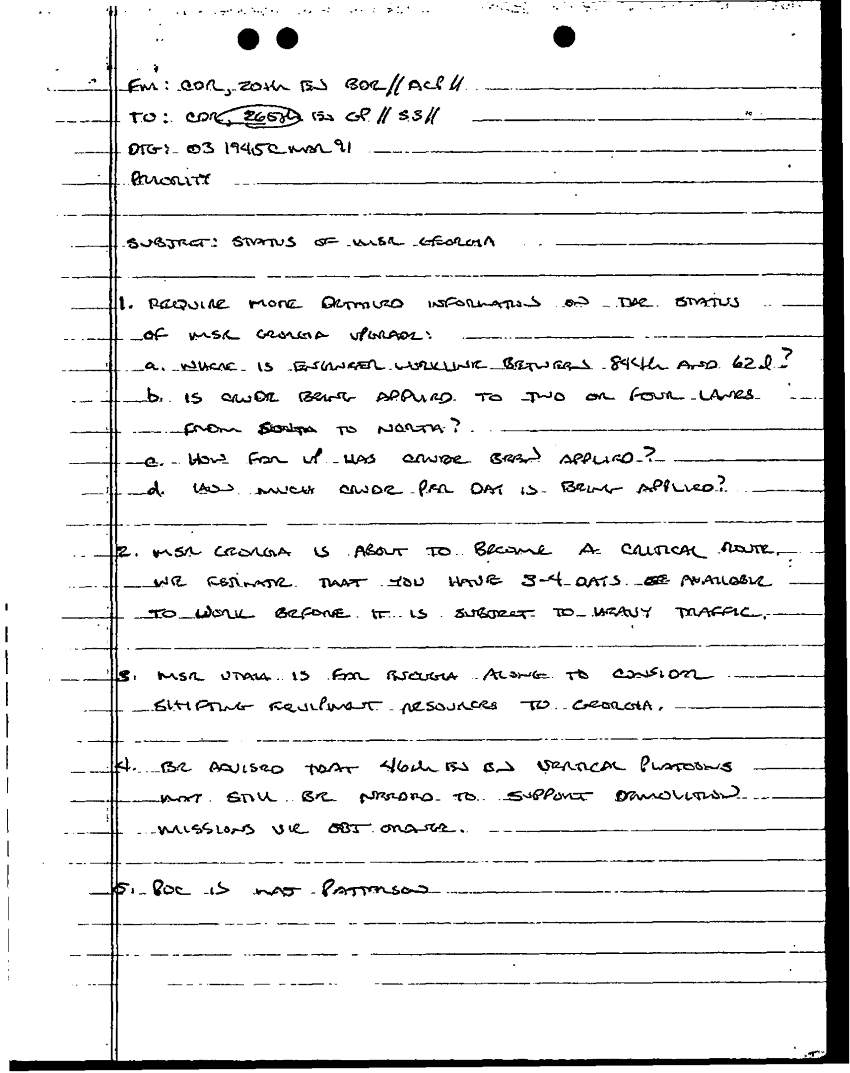 FM: CDR, 20th EN BDE//ACP//
TO: CDR, 265th EN GP//S3//
DTG: 03 1945C MAR 91
PRIORITY
SUBJECT: STATUS OF MSR GEORGIA
1. REQUIRE MORE DETAILED INFORMATION ON THE STATUS
OF MSR GEORGIA UPGRADE:
a. WHERE IS ENGINEER WORKLINE BETWEEN 84th AND 62d?
b. IS CRUDE BEING APPLIED TO TWO OR FOUR LANES
FROM SOUTH TO NORTH?
c. HOW FAR UP HAS CRUDE BEEN APPLIED?
d. HOW MUCH CRUDE PER DAY IS BEING APPLIED?
2. MSR GEORGIA IS ABOUT TO BECOME A CRITICAL ROUTE.
WE ESTIMATE THAT YOU HAVE 3-4 DAYS AVAILABLE
TO WORK BEFORE IT IS SUBJECT TO HEAVY TRAFFIC.
3. MSR UTAH IS FAR ENOUGH ALONG TO CONSIDER
SHIFTING EQUIPMENT RESOURCES TO GEORGIA.
4. BE ADVISED THAT 46th EN BN VERTICAL PLATOONS
MAY STILL BE NEEDED TO SUPPORT DEMOLITION
MISSIONS VIC OBJ ORANGE.
5. POC IS MAJ PATTERSON